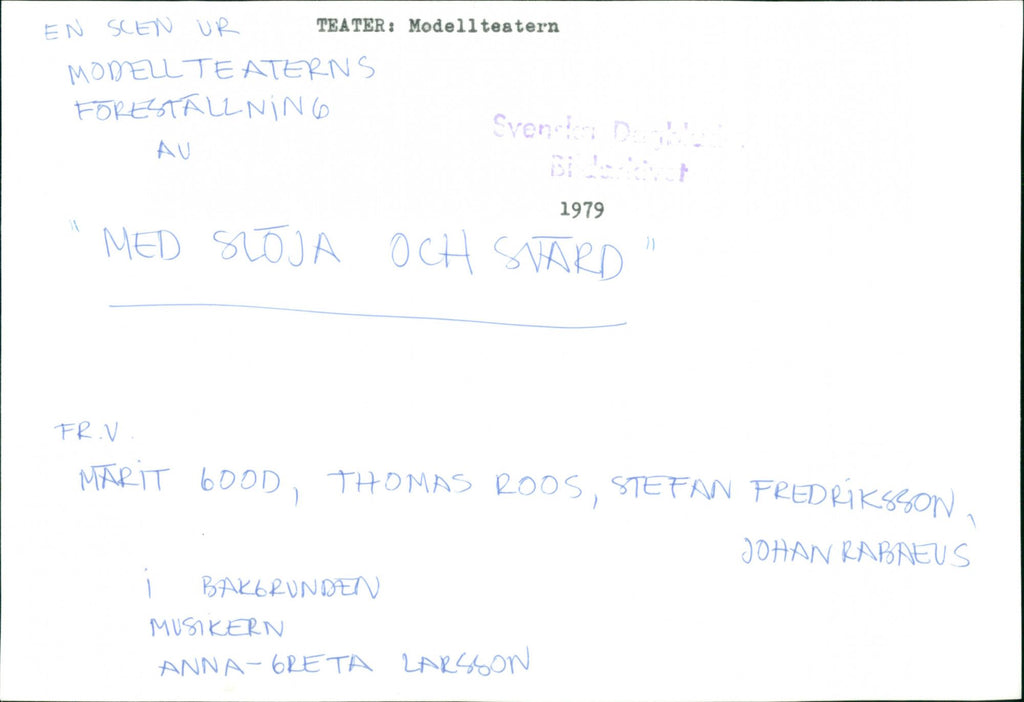 EN SCEN UR
TEATER: Modellteatern
MODELLTEATERNS
FÖRESTÄLLNING
AV
Svenska Dagbladet
Bildarkivet
1979
"MED SLÖJA OCH SVÄRD"
FR.V.
MÄRIT GOOD, THOMAS ROOS, STEFAN FREDRIKSSON,
JOHAN RABAEUS
I BAKGRUNDEN
MUSIKERN
ANNA-GRETA LARSSON